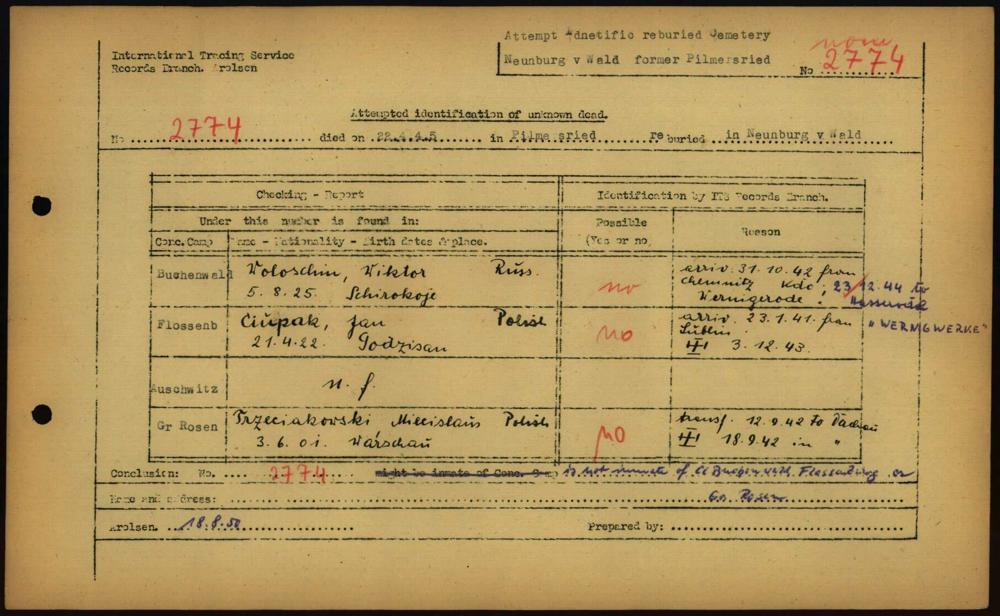 International Tracing Service
Records Branch. Arolsen
Attempt Idnetific reburied Cemetery
Neunburg v Wald former Pilmersried
none
No 2774
Attempted identification of unknown dead.
No 2774 died on 22.4.45 in Pilmersried re buried in Neunburg v Wald
Checking - Report
Identification by ITS Records Branch.
Under this number is found in:
Possible
(Yes or no)
Reason
Conc. Camp
Name - Nationality - Birth dates & place.
Buchenwald
Woloschin, Wiktor Russ.
5.8.25. Schirokoje
no
arriv. 31.10.42 from
Chemnitz Kdo; 23/12.44 to
Wernigerode.
"WERNIGWERKE"
Flossenb
Ciupak, Jan Polish
21.4.22. Godzisan
no
arriv. 23.1.41. from
Lublin.
3.12.43.
Auschwitz
n. f.
Gr Rosen
Trzeciakowski, Miecislaus Polish
3.6.01. Warschau
no
transf. 12.9.42 to Dachau
18.9.42 in "
Conclusion: No. 2774 might be inmate of Conc. is not inmate of Cl Buchenwald. Flossenburg or
Gr. Rosen.
Name and address:
Arolsen. 18.8.50
Prepared by: